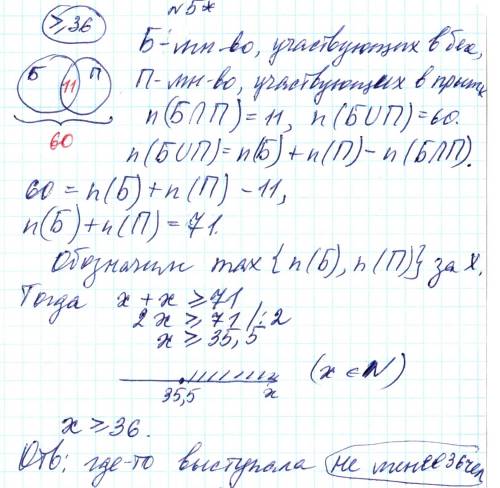 №5*
≥36
Б - мн-во, участвующих в беге,
Б 11 П
П - мн-во, участвующих в прыжк
n(Б∩П) = 11, n(Б∪П) = 60.
60
n(Б∪П) = n(Б) + n(П) - n(Б∩П).
60 = n(Б) + n(П) - 11,
n(Б) + n(П) = 71.
Обозначим max {n(Б), n(П)} за x.
Тогда x + x ≥ 71
2x ≥ 71 /:2
x ≥ 35,5
35,5 x (x ∈ N)
x ≥ 36.
Отв: где-то выступала не менее 36 чел